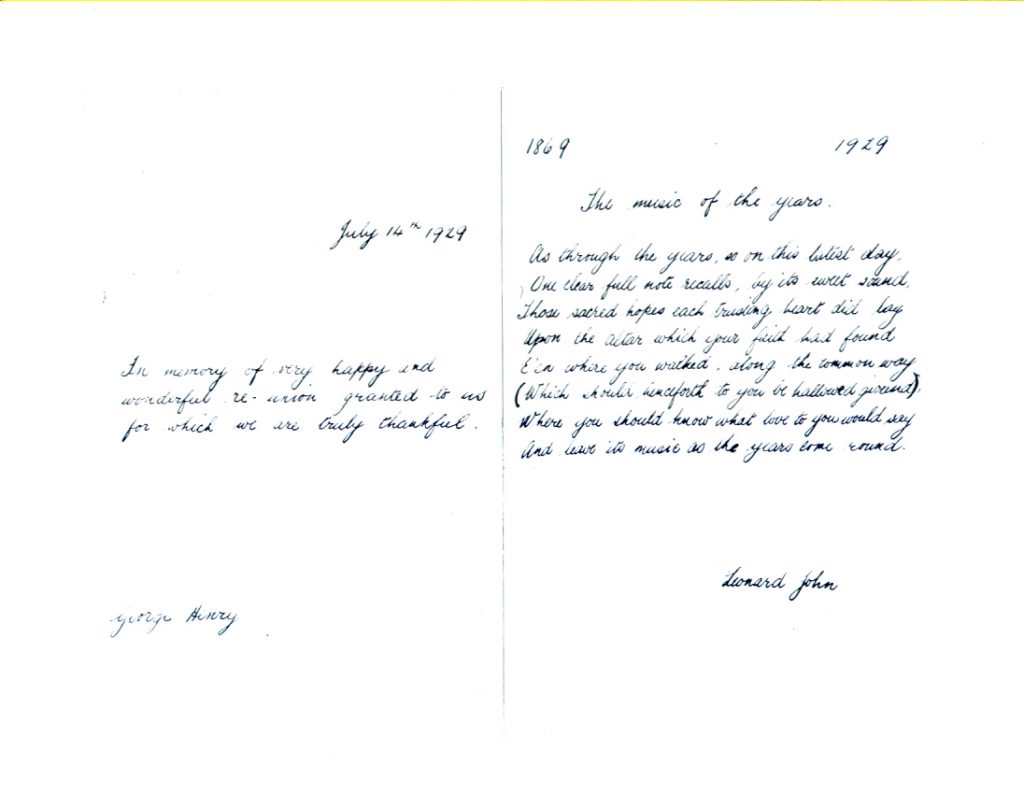 July 14th 1929
In memory of very happy and
wonderful re-union granted to us
for which we are truly thankful.
George Henry
1869 1929
The music of the years.
As through the years, so on this latest day,
One clear full note recalls, by its sweet sound,
Those sacred hopes each trusting heart did lay
Upon the altar which your faith had found
E'en where you walked, along the common way
(Which should henceforth to you be hallowed ground)
Where you should know what love to you would say
And leave its music as the years come round.
Leonard John